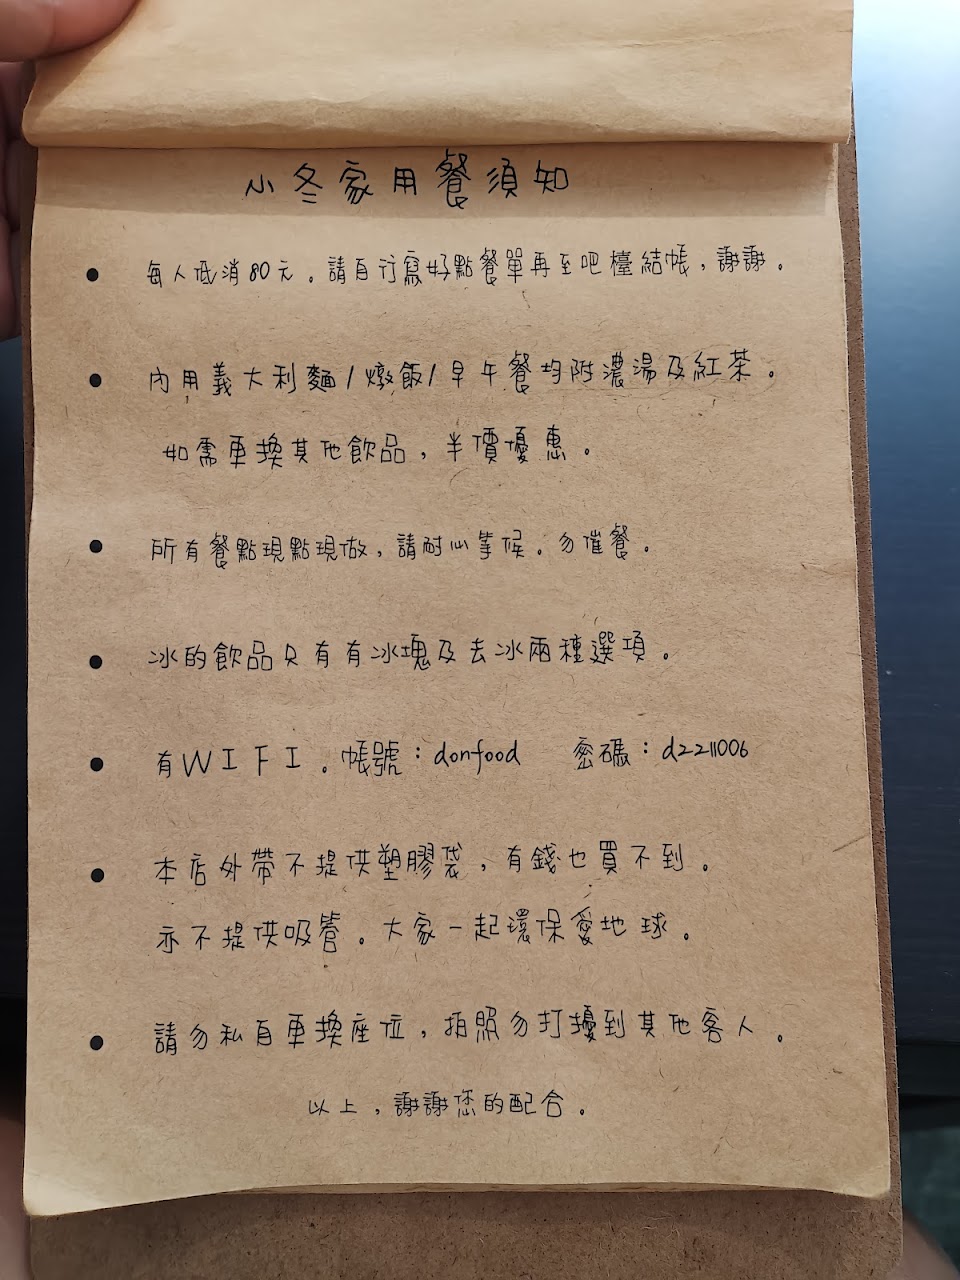 小冬家用餐須知
● 每人低消80元。請自行寫好點餐單再至吧檯結帳，謝謝。
● 內用義大利麵/燉飯/早午餐均附濃湯及紅茶。
如需更換其他飲品，半價優惠。
● 所有餐點現點現做，請耐心等候。勿催餐。
● 冰的飲品只有有冰塊及去冰兩種選項。
● 有WIFI。帳號：donfood 密碼：d2211006
● 本店外帶不提供塑膠袋，有錢也買不到。
亦不提供吸管。大家一起環保愛地球。
● 請勿私自更換座位，拍照勿打擾到其他客人。
以上，謝謝您的配合。